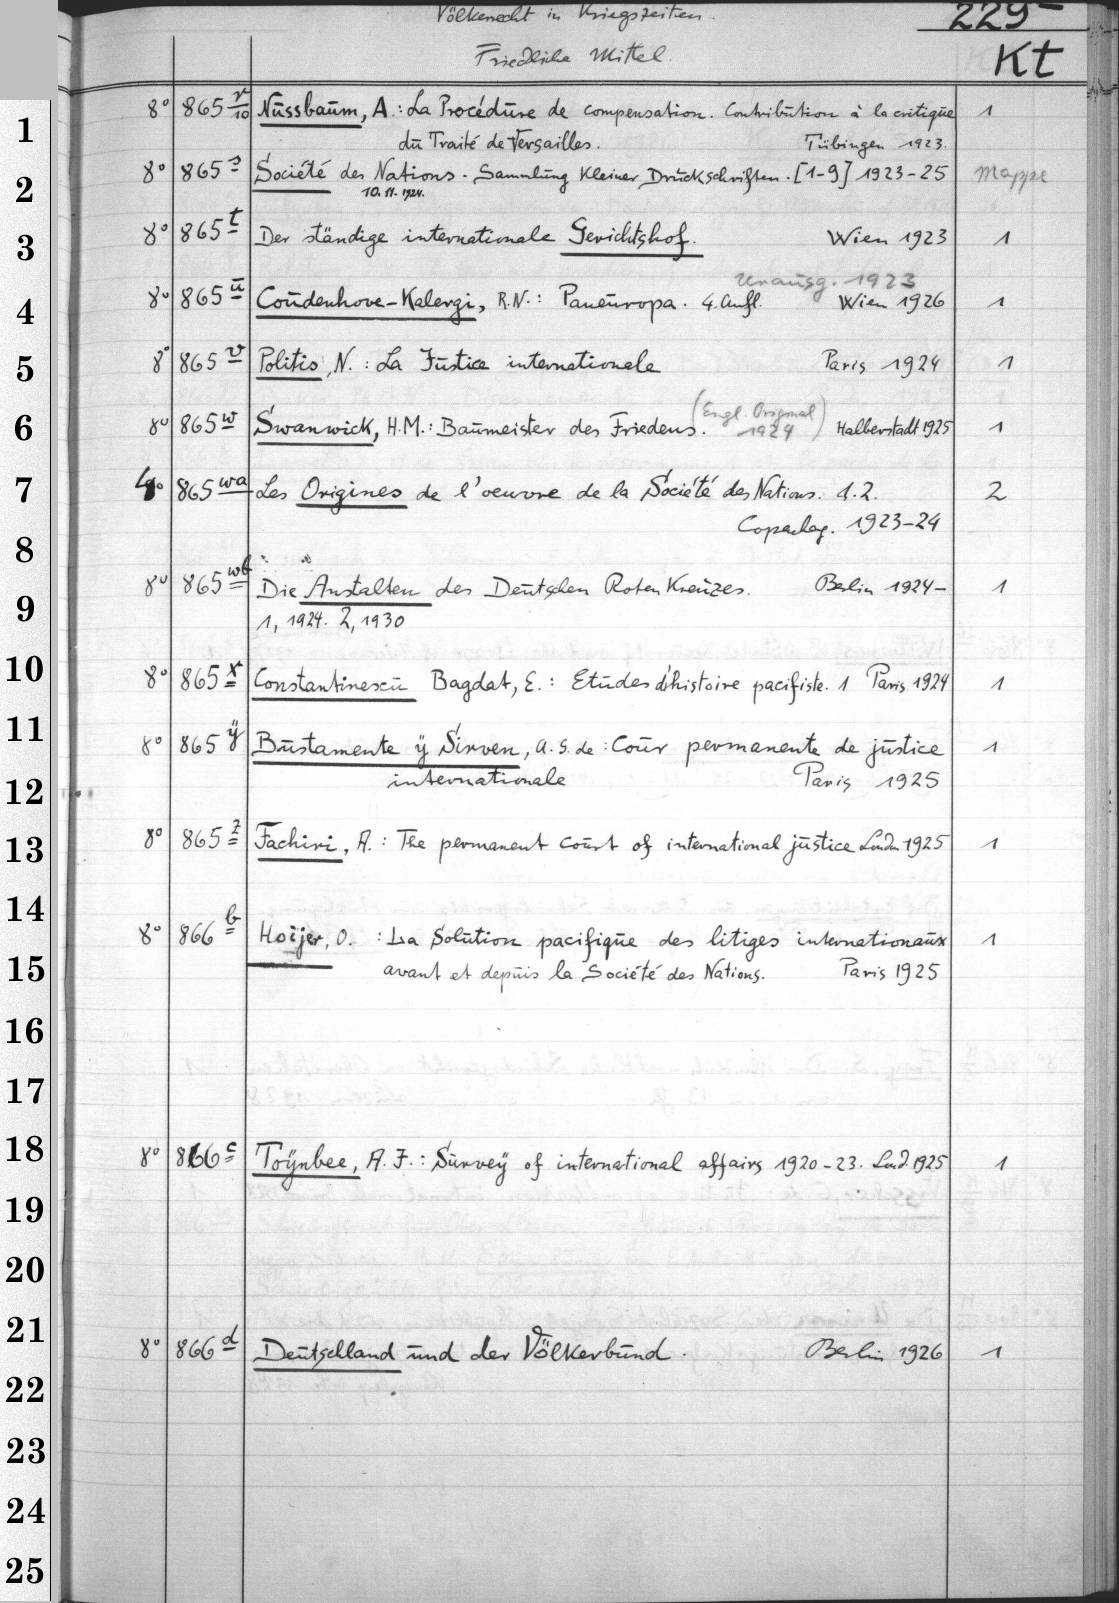 Völkerrecht in Kriegszeiten. 229
Friedliche Mittel. Kt
8° 865 r/10 Nussbaum, A.: La Procédure de compensation. Contribution à la critique 1
1
du Traité de Versailles. Tübingen 1923.
2 8° 865 s Société des Nations. Sammlung kleiner Druckschriften. [1-9] 1923-25 Mappe
10.11.1924.
3 8° 865 t Der ständige internationale Gerichtshof. Wien 1923 1
Urausg. 1923
4 8° 865 u Coudenhove-Kalergi, R.N.: Paneuropa. 4. Aufl. Wien 1926 1
5 8° 865 v Politis, N.: La Justice internationale Paris 1924 1
(Engl. Original
6 8° 865 w Swanwick, H.M.: Baumeister des Friedens. 1924) Halberstadt 1925 1
7 4° 865 wa Les Origines de l'oeuvre de la Société des Nations. 1.2. 2
Copenhag. 1923-24
8
8° 865 wb Die Anstalten des Deutschen Roten Kreuzes. Berlin 1924- 1
9
1, 1924. 2, 1930
10 8° 865 x Constantinescu Bagdat, E.: Etudes d'histoire pacifiste. 1 Paris 1924 1
11 8° 865 ÿ Bustamente ÿ Sirven, A.S. de: Cour permanente de justice 1
12 internationale Paris 1925
13 8° 865 z Fachiri, A.: The permanent court of international justice London 1925 1
14
8° 866 b Hoijer, O. : La Solution pacifique des litiges internationaux 1
15 avant et depuis la Société des Nations. Paris 1925
16
17
18 8° 866 c Toÿnbee, A.J.: Surveÿ of international affairs 1920-23. Lond. 1925 1
19
20
21
8° 866 d Deutschland und der Völkerbund. Berlin 1926 1
22
23
24
25